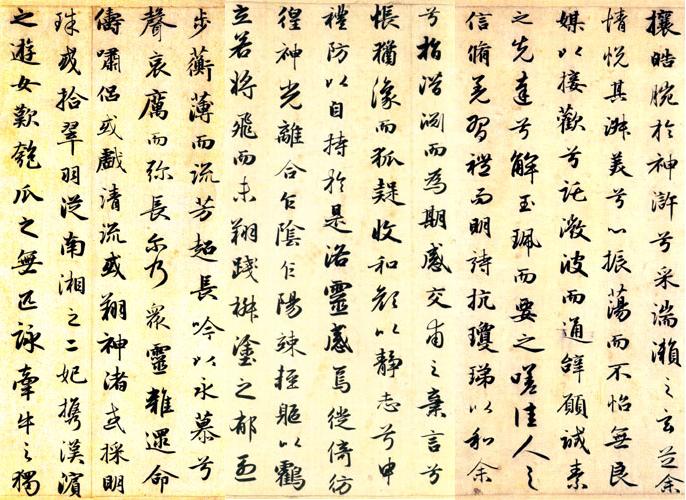 攘皓腕於神滸兮采湍瀨之玄芝余
情悅其淑美兮心振蕩而不怡無良
媒以接歡兮託微波而通辭願誠素
之先達兮解玉珮而要之嗟佳人之
信脩羌習禮而明詩抗瓊珶以和余
兮指潛淵而為期感交甫之棄言兮
悵猶豫而狐疑收和顏以靜志兮申
禮防以自持於是洛靈感焉徙倚彷
徨神光離合乍陰乍陽竦輕軀以鶴
立若將飛而未翔踐椒塗之郁烈
步蘅薄而流芳超長吟以永慕兮
聲哀厲而彌長爾乃眾靈雜遝命
儔嘯侶或戲清流或翔神渚或採明
珠或拾翠羽從南湘之二妃攜漢濱
之遊女歎匏瓜之無匹詠牽牛之獨